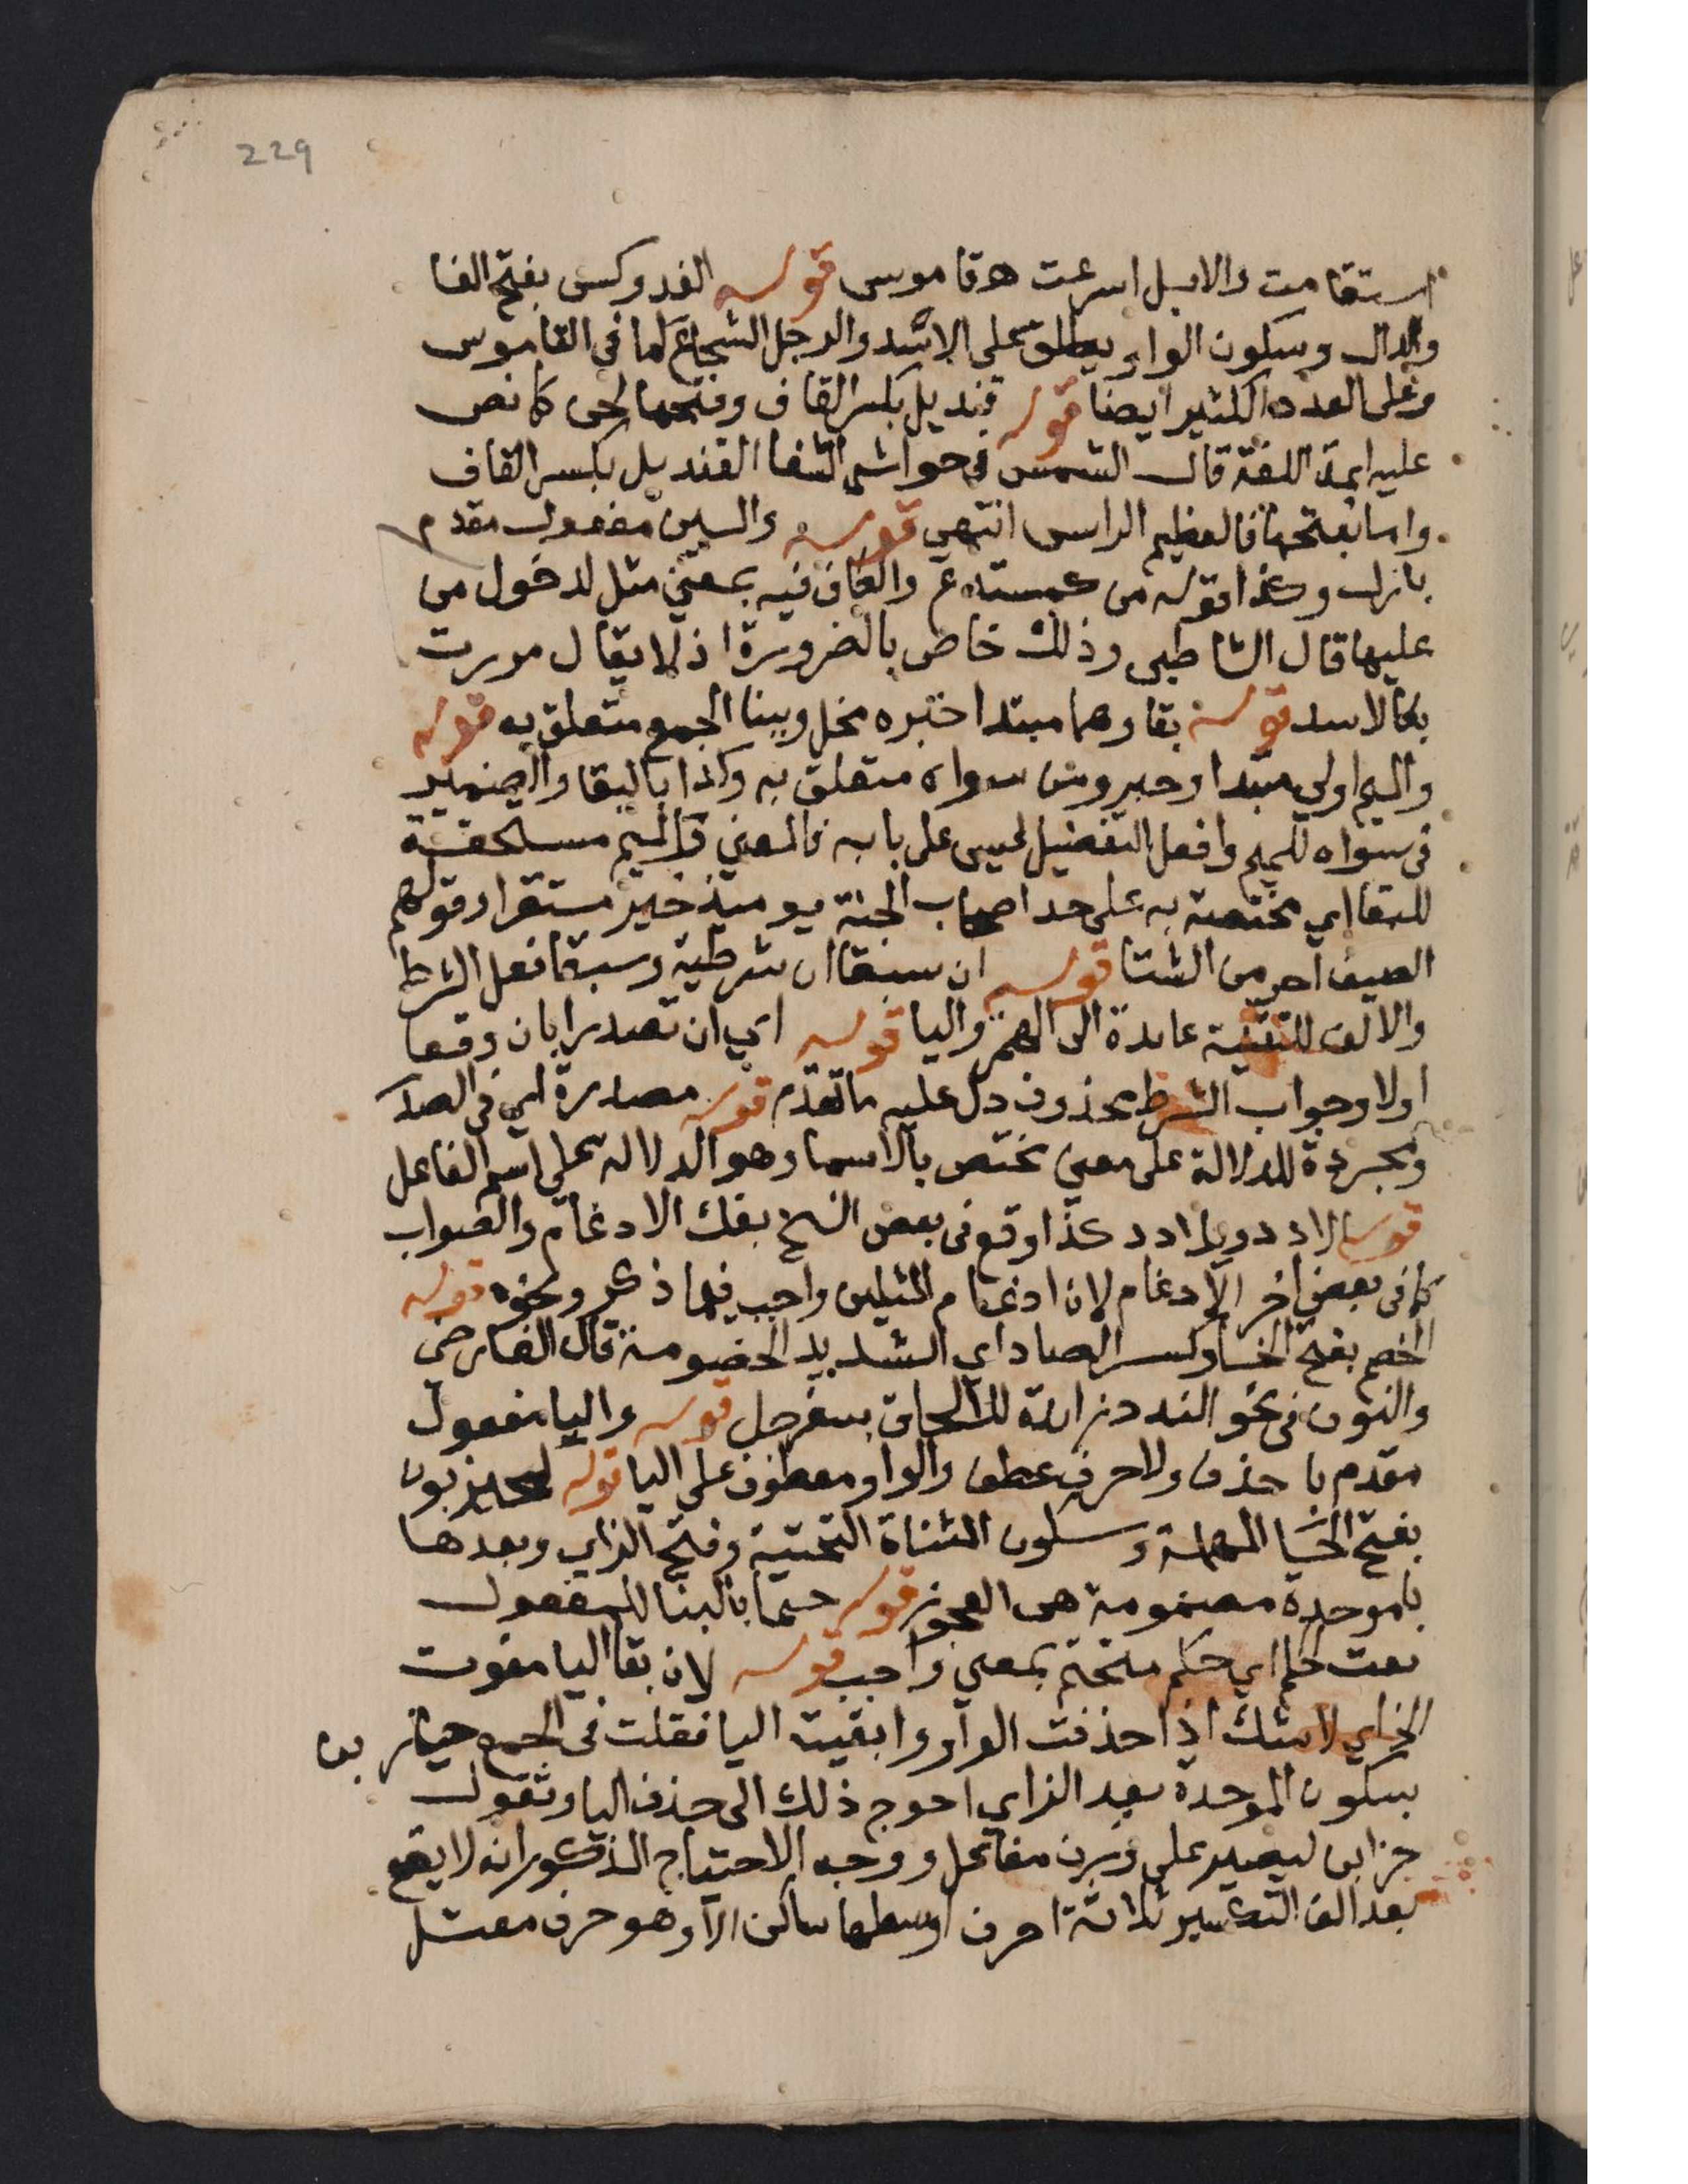 229
استقامت والابل اسرعت هو قاموس قوله الفدوكس بفتح الفا
والدال وسكون الواو يطلق على الاسد والرجل الشجاع كما في القاموس
وعلى العدد الكثير ايضا قوله قنديل بكسر القاف وفتحها لحن كما نص
عليه ايمة اللغة قال الشمس في حواشي الشفا القنديل بكسر القاف
واما بفتحها فالعظيم الراس انتهى قوله والسين مفعول مقدم
بازل وكذا قوله من كمستدع والكاف فيه بمعني مثل لدخول من
عليها قال الشاطبي وذلك خاص بالضرورة اذ لا يقال مررت
بكالاسد قوله بقاوهما مبتدا خبره مخل وببنا الجمع متعلق به قوله
والميم اولي مبتدا وخبر ومن سواه متعلق به وكذا بالبقا والضمير
في سواه للميم وافعل التفضيل ليس على بابه فالمعني والميم مستحقة
للبقا اي مختصة به على حد اصحاب الجنة يوميذ خير مستقرا وقولهم
الصيف احر من الشتا قوله ان سبقا ان شرطية وسبقا فعل الشرط
والالف للتثنية عايدة الى الهمز واليا قوله اي ان تصدرا بان وقعا
اولا وجواب الشرط محذوف دل عليه ما تقدم قوله مصدرة اي في الصدر
ومجردة للدلالة على معني تختص بالاسما وهو الدلالة على اسم الفاعل
قوله الادد ويلادد كذا وقع في بعض النسخ بفك الادغام والصواب
كما في بعض اخر الادغام لان ادغام المثلين واجب فيما ذكر ونحوه قوله
الخصم بفتح الخا وكسر الصاد اي الشديد الخصومة قال الفارضي
والنون في نحو الندد زائدة للالحاق بسفرجل قوله واليا مفعول
مقدم باحذف ولا حرف عطف والواو معطوف على اليا قوله لحيزبون
بفتح الحا المهملة وسكون المثناة التحتية وفتح الزاي وبعدها
باموحدة مضمومة هي العجوز قوله حتما بالبنا للمفعول
نعت حكم اي حكم متحتم بمعني واجب قوله لان بقا اليا مفوت
الخ اي لانك اذا حذفت الواو وابقيت اليا فقلت في الجمع حيازبن
بسكون الموحدة بعد الزاي احوج ذلك الى حذف اليا وتقول
حزابن ليصير على وزن مفاعل ووجه الاحتياج المذكور انه لا يقع
بعد الف التكسير ثلاثة احرف اوسطها ساكن الا وهو حرف معتل